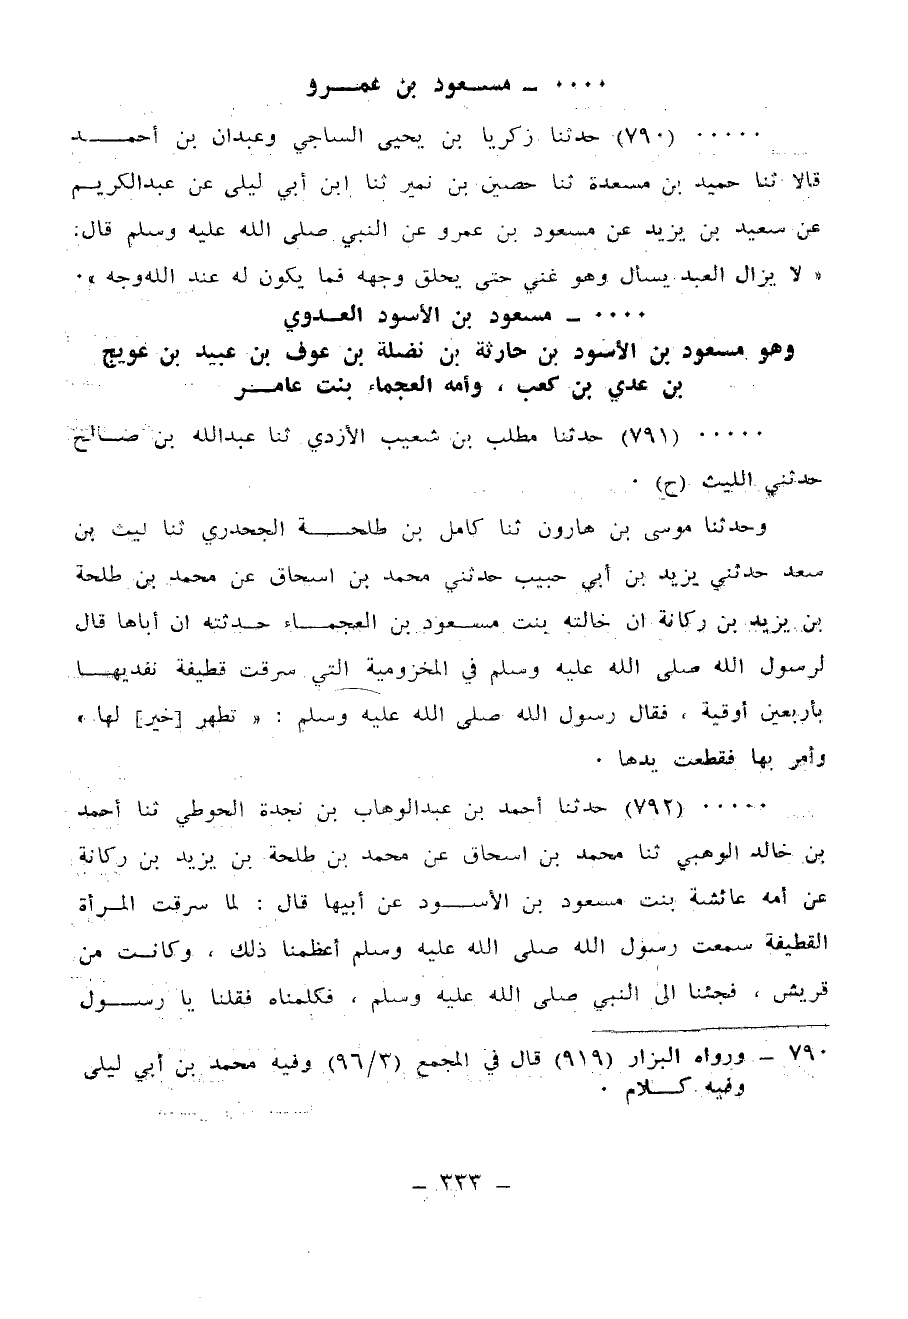 ٠٠٠٠ ـ مسعود بن عمرو
٠٠٠٠٠ (٧٩٠) حدثنا زكريا بن يحيى الساجي وعبدان بن أحمد
قالا ثنا حميد بن مسعدة ثنا حصين بن نمير ثنا ابن أبي ليلى عن عبدالكريم
عن سعيد بن يزيد عن مسعود بن عمرو عن النبي صلى الله عليه وسلم قال:
« لا يزال العبد يسأل وهو غني حتى يخلق وجهه فما يكون له عند الله وجه » ٠
٠٠٠٠ ـ مسعود بن الأسود العدوي
وهو مسعود بن الأسود بن حارثة بن نضلة بن عوف بن عبيد بن عويج
بن عدي بن كعب ، وأمه العجماء بنت عامر
٠٠٠٠٠ (٧٩١) حدثنا مطلب بن شعيب الأزدي ثنا عبدالله بن صالح
حدثني الليث (ح) ٠
وحدثنا موسى بن هارون ثنا كامل بن طلحة الجحدري ثنا ليث بن
سعد حدثني يزيد بن أبي حبيب حدثني محمد بن اسحاق عن محمد بن طلحة
بن يزيد بن ركانة ان خالته بنت مسعود بن العجماء حدثته ان أباها قال
لرسول الله صلى الله عليه وسلم في المخزومية التي سرقت قطيفة نفديها
بأربعين أوقية ، فقال رسول الله صلى الله عليه وسلم : « تطهر [خير] لها »
وأمر بها فقطعت يدها ٠
٠٠٠٠٠ (٧٩٢) حدثنا أحمد بن عبدالوهاب بن نجدة الحوطي ثنا أحمد
بن خالد الوهبي ثنا محمد بن اسحاق عن محمد بن طلحة بن يزيد بن ركانة
عن أمه عائشة بنت مسعود بن الأسود عن أبيها قال : لما سرقت المرأة
القطيفة سمعت رسول الله صلى الله عليه وسلم أعظمنا ذلك ، وكانت من
قريش ، فجئنا الى النبي صلى الله عليه وسلم ، فكلمناه فقلنا يا رسول
٧٩٠ ـ ورواه البزار (٩١٩) قال في المجمع (٩٦/٣) وفيه محمد بن أبي ليلى
وفيه كلام ٠
ـ ٣٣٣ ـ